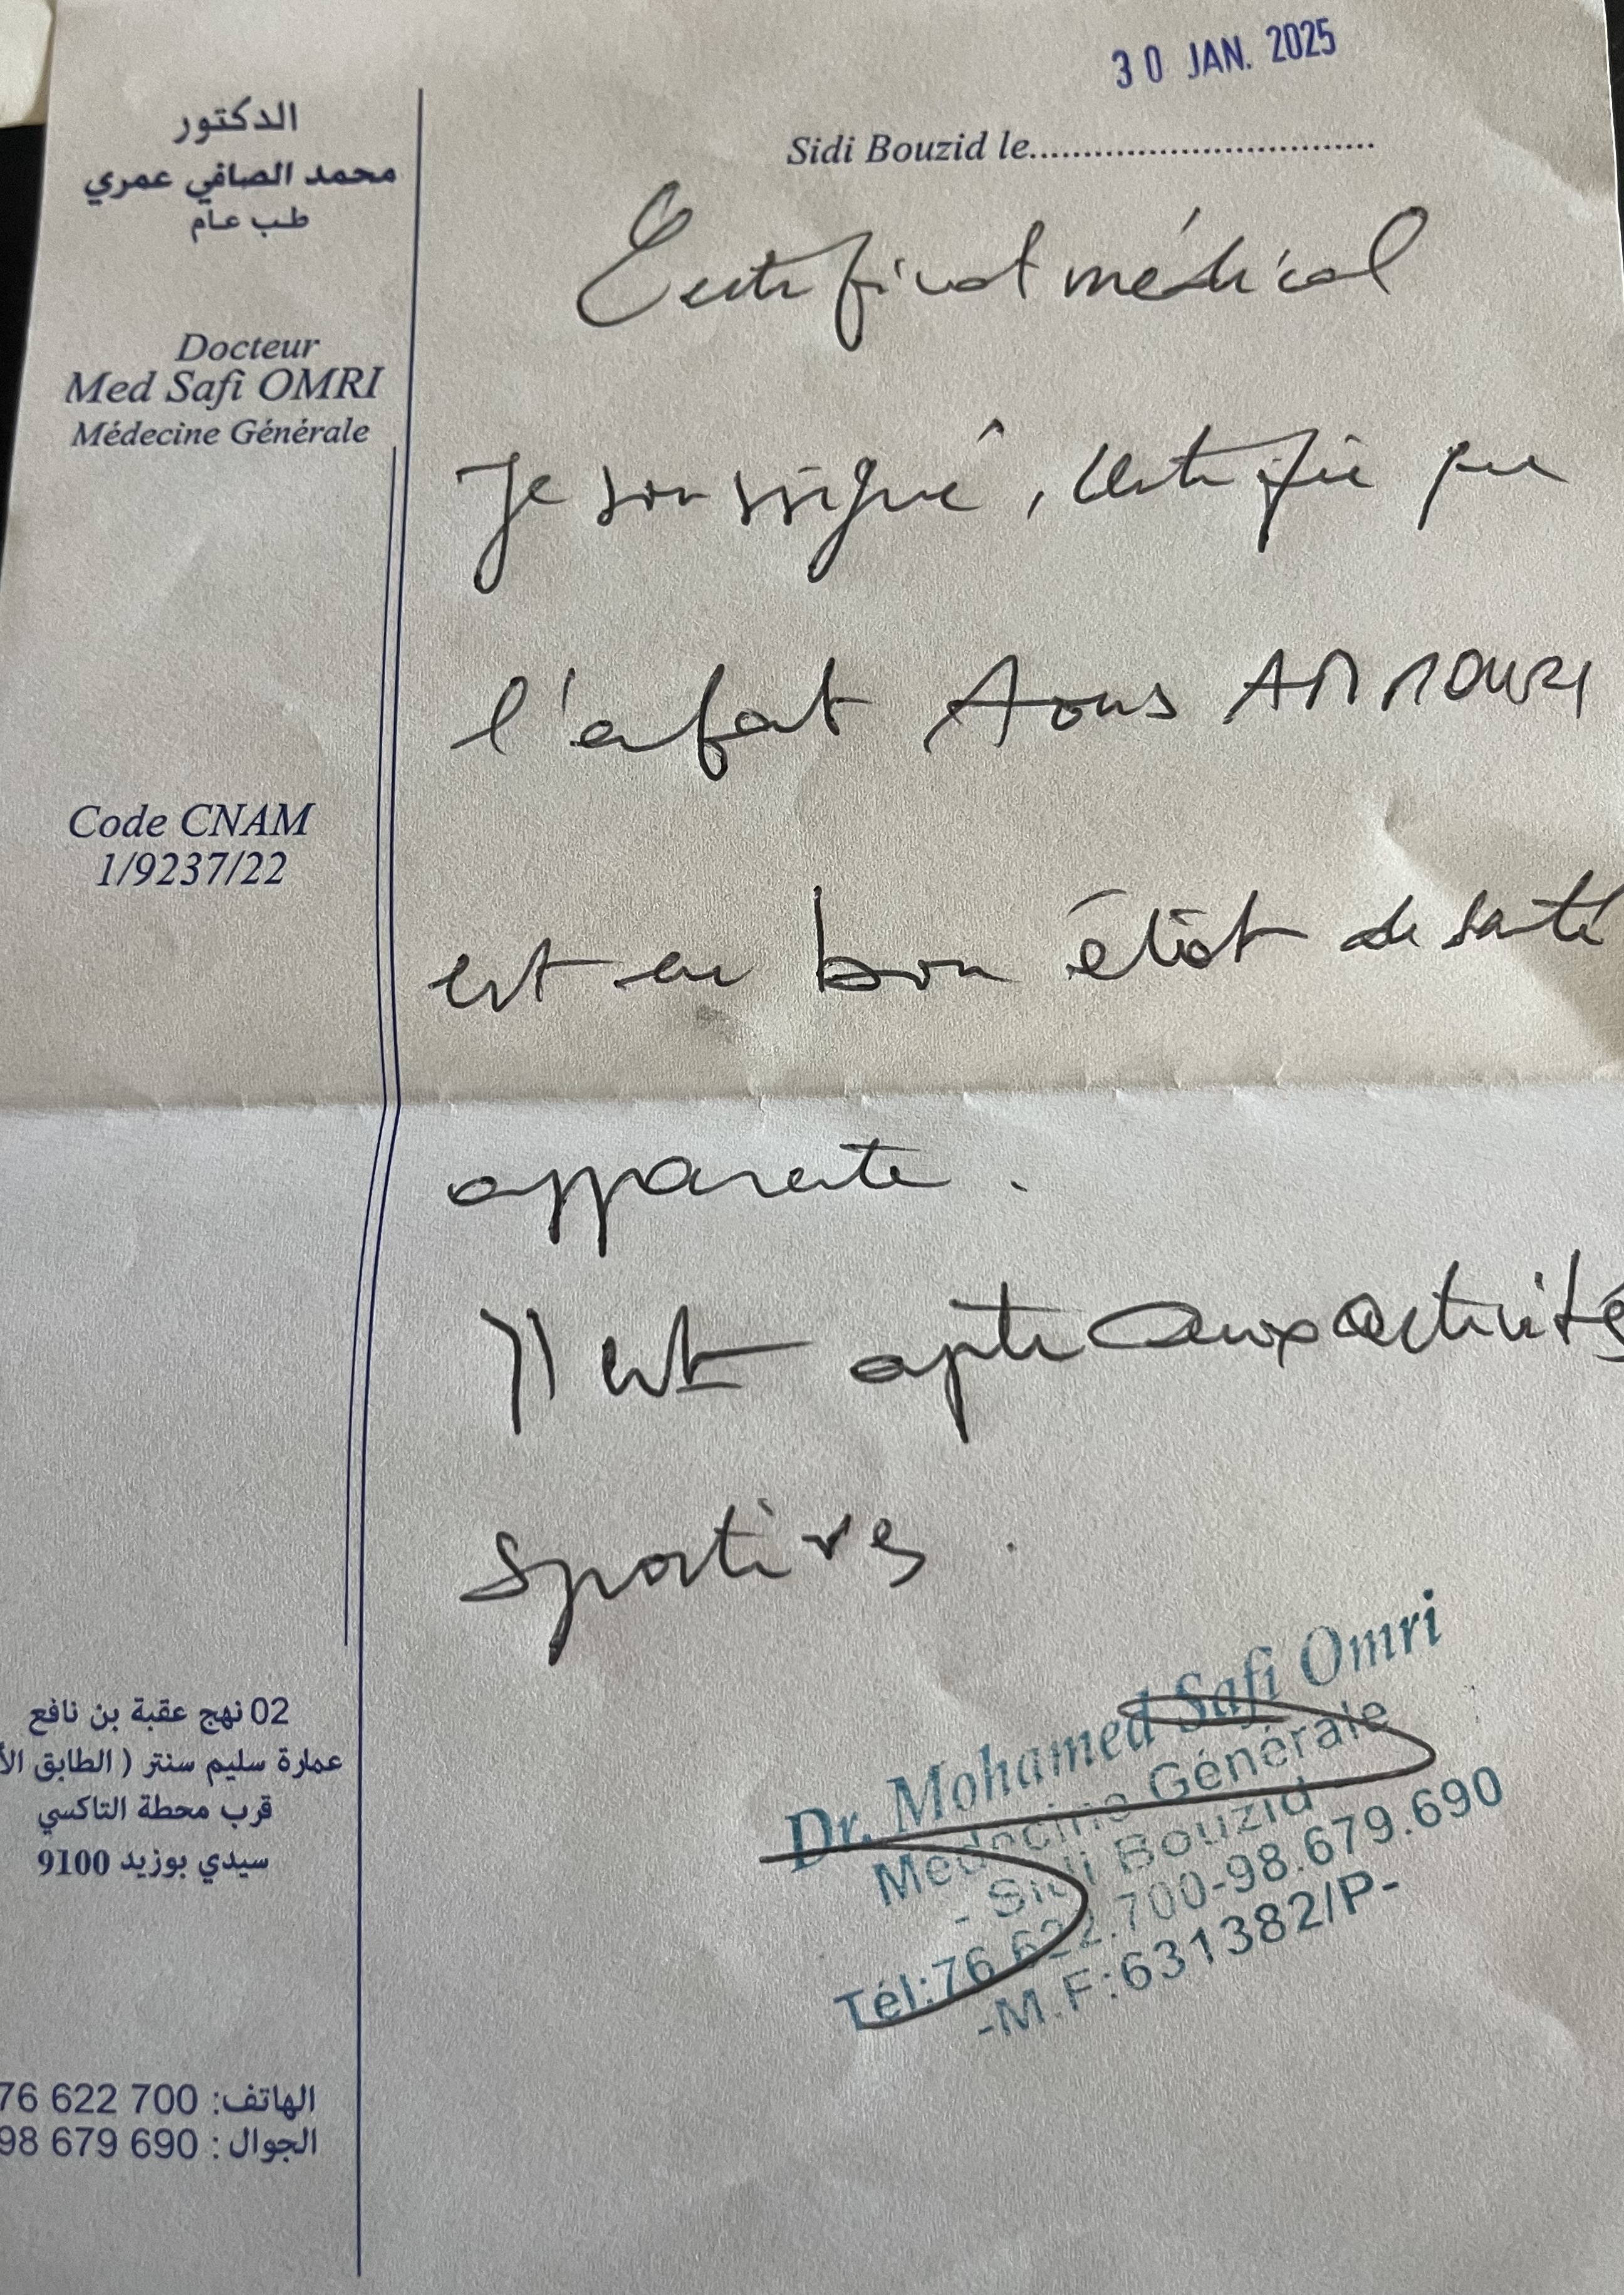 30 JAN. 2025
Sidi Bouzid le
الدكتور
محمد الصافي عمري
طب عام
Docteur
Med Safi OMRI
Médecine Générale
Code CNAM
1/9237/22
Certificat médical
Je soussigné, certifie que
l'enfant Aous
est en bon état de santé
apparente.
Il est apte aux activités
sportives.
Dr. Mohamed Safi Omri
Médecine Générale
- Sidi Bouzid -
Tél:76.622.700-98.679.690
-M.F:631382/P-
02 نهج عقبة بن نافع
عمارة سليم سنتر ( الطابق
قرب محطة التاكسي
سيدي بوزيد 9100
الهاتف: 76 622 700
الجوال : 98 679 690